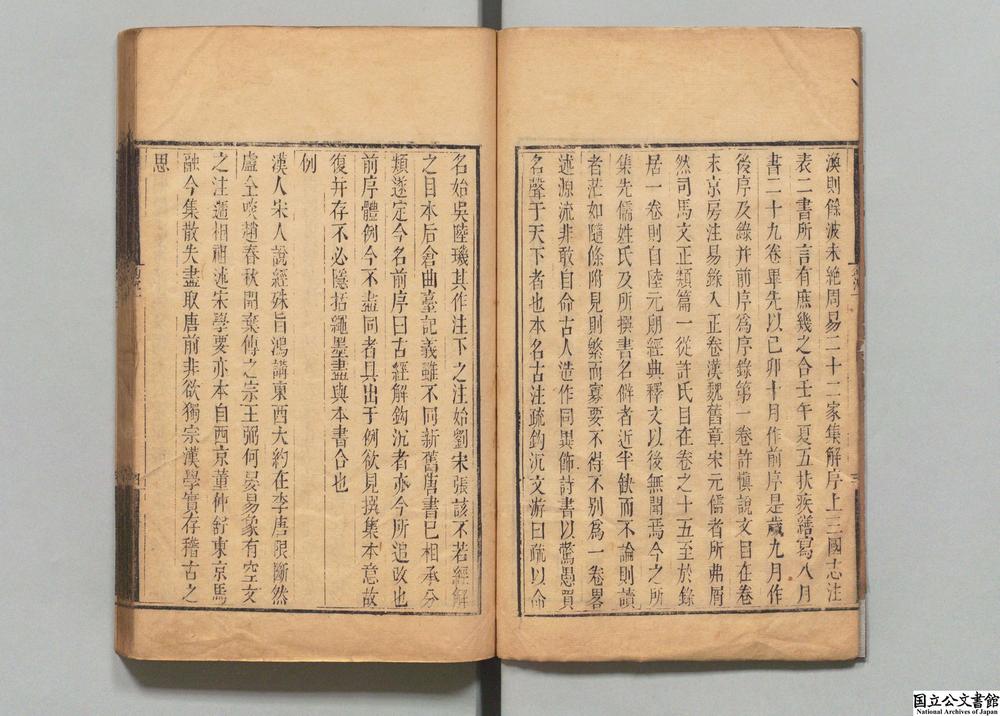 渙則餘波未絶周易二十二家集解序上三國志注
表二書所言有庶幾之合壬午夏五扶疾繕寫八月
書二十九卷畢先以己卯十月作前序是歲九月作
後序及錄并前序爲序錄第一卷許愼說文目在卷
末京房注易錄入正卷漢魏舊章宋元儒者所弗屑
然司馬文正類篇一從許氏目在卷之十五至於錄
居一卷則自陸元朗經典釋文以後無聞焉今之所
集先儒姓氏及所撰書名僻者近半缺而不論則讀
者茫如隨條附見則繁而寡要不得不別爲一卷畧
述源流非敢自命古人造作同異飾詩書以驚愚買
名聲于天下者也本名古注疏鈎沉文游曰疏以命
名始吳陸璣其作注下之注始劉宋張該不若經解
之目本后倉曲臺記義雖不同新舊唐書已相承分
類遂定今名前序曰古經解鈎沉者亦今所追改也
前序體例今不盡同者具出于例欲見撰集本意故
復并存不必隱括繩墨盡與本書合也
例
漢人宋人說經殊旨鴻講東西大約在李唐限斷然
盧仝啖趙春秋開棄傳之宗王弼何晏易象有空文
之注遞相祖述宋學要亦本自西京董仲舒東京馬
融今集散失盡取唐前非欲獨宗漢學實存稽古之
思
国立公文書館
National Archives of Japan